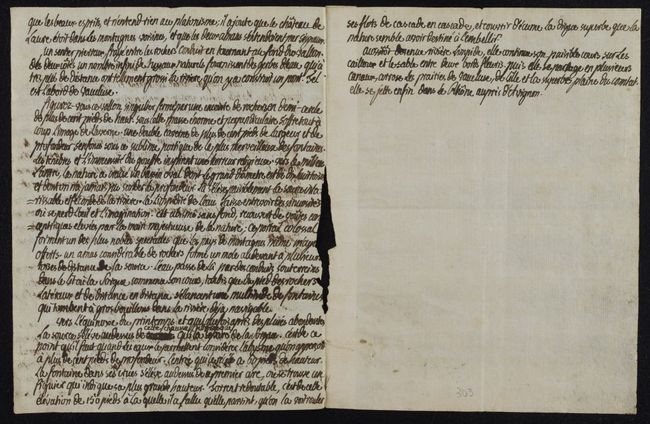 que les beaux esprits, et n'entend rien au platonisme, il ajoute que le château de
Laure étoit dans les montagnes voisines, et que les deux amans s'entendoient par signaux.
un sentier pierreux, fraÿé entre les rochers conduit en tournant au fond du vallon.
des deux côtés un nombre infini de ruisseaux naturels fournissent des gerbes d'eau, qui à
très peu de distance ont tellement grossi la rivière, qu'on y a construit un pont. tel
est l'abord de vaucluse.
figurez vous ce vallon singulier fermé par une enceinte de rochers en demi-cercle
de plus de cent pieds de haut. sous cette masse énorme et perpendiculaire s'offre tout à
coup l'image de l'averne. une double caverne de plus de cent pieds de largeur et de
profondeur s'enfonce sous ce sublime portique de la plus merveilleuse des fontaines.
les ténèbres et l'immensité du gouffre inspirent une terreur religieuse. vers le milieu de
l'antre, la nature a creusé un bassin oval dont le grand diamètre est de
et dont on n'a jamais pu sonder la profondeur. là s'élève paisiblement la source
et féconde de la rivière. la limpidité de l'eau laisse entrevoir des
où se perd l'œil et l'imagination. cet abîme sans fond, recouvert de voûtes
élevées par la main majestueuse de la nature, ce portail colossal
forment un des plus nobles spectacles que les pays de montagnes même
offerts. un amas considérable de rochers forme un mole au devant à plusieurs
toises de distance de la source. l'eau passe de là par des conduits souterrains
dans le lit où la Sorgue commence son cours, tandis que du pied des rochers
latéraux et de distance en distance s'élancent une multitude de fontaines
qui tombent à gros bouillons dans la rivière déja navigable.
vers l'équinoxe du printemps et quelquefois après des pluies abondantes
la source s'élève au dessus de cette
qui la sépare de la Sorgue. c'est de ce
point qu'il faut quand les eaux la permettent considérer l'abîme
à plus de cent pieds de profondeur. l'antre qui le a 60 pieds de hauteur.
la fontaine dans ses crues s'élève au dessus de premier arc, où se trouve un
figuier qui indique sa plus grande hauteur. torrent redoutable, c'est de cette
élévation de 150 pieds à la quelle il a fallu qu'elle parvint, qu'on la voit rouler
ses flots de cascade en cascade, et couvrir d'écume la digue superbe que la
nature semble avoir destiné à l'embellir.
aussitôt devenue rivière limpide, elle continue son paisible cours sur les
cailloux et le sable entre deux bords fleuris, puis elle se partage en plusieurs
canaux, arrose les prairies de vaucluse, de l'ille et la superbe plaine du comtat.
elle se jette enfin dans le Rhône auprès d'avignon.
363